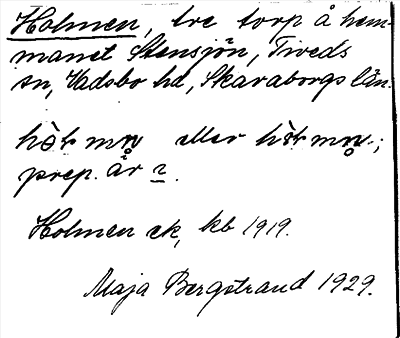 Holmen, tre torp å hem-
manet Stensjön, Tiveds
sn, Vadsbo hd, Skaraborgs län.
eller
prep. är i.
Holmen ek, kb 1919.
Maja Bergstrand 1929.